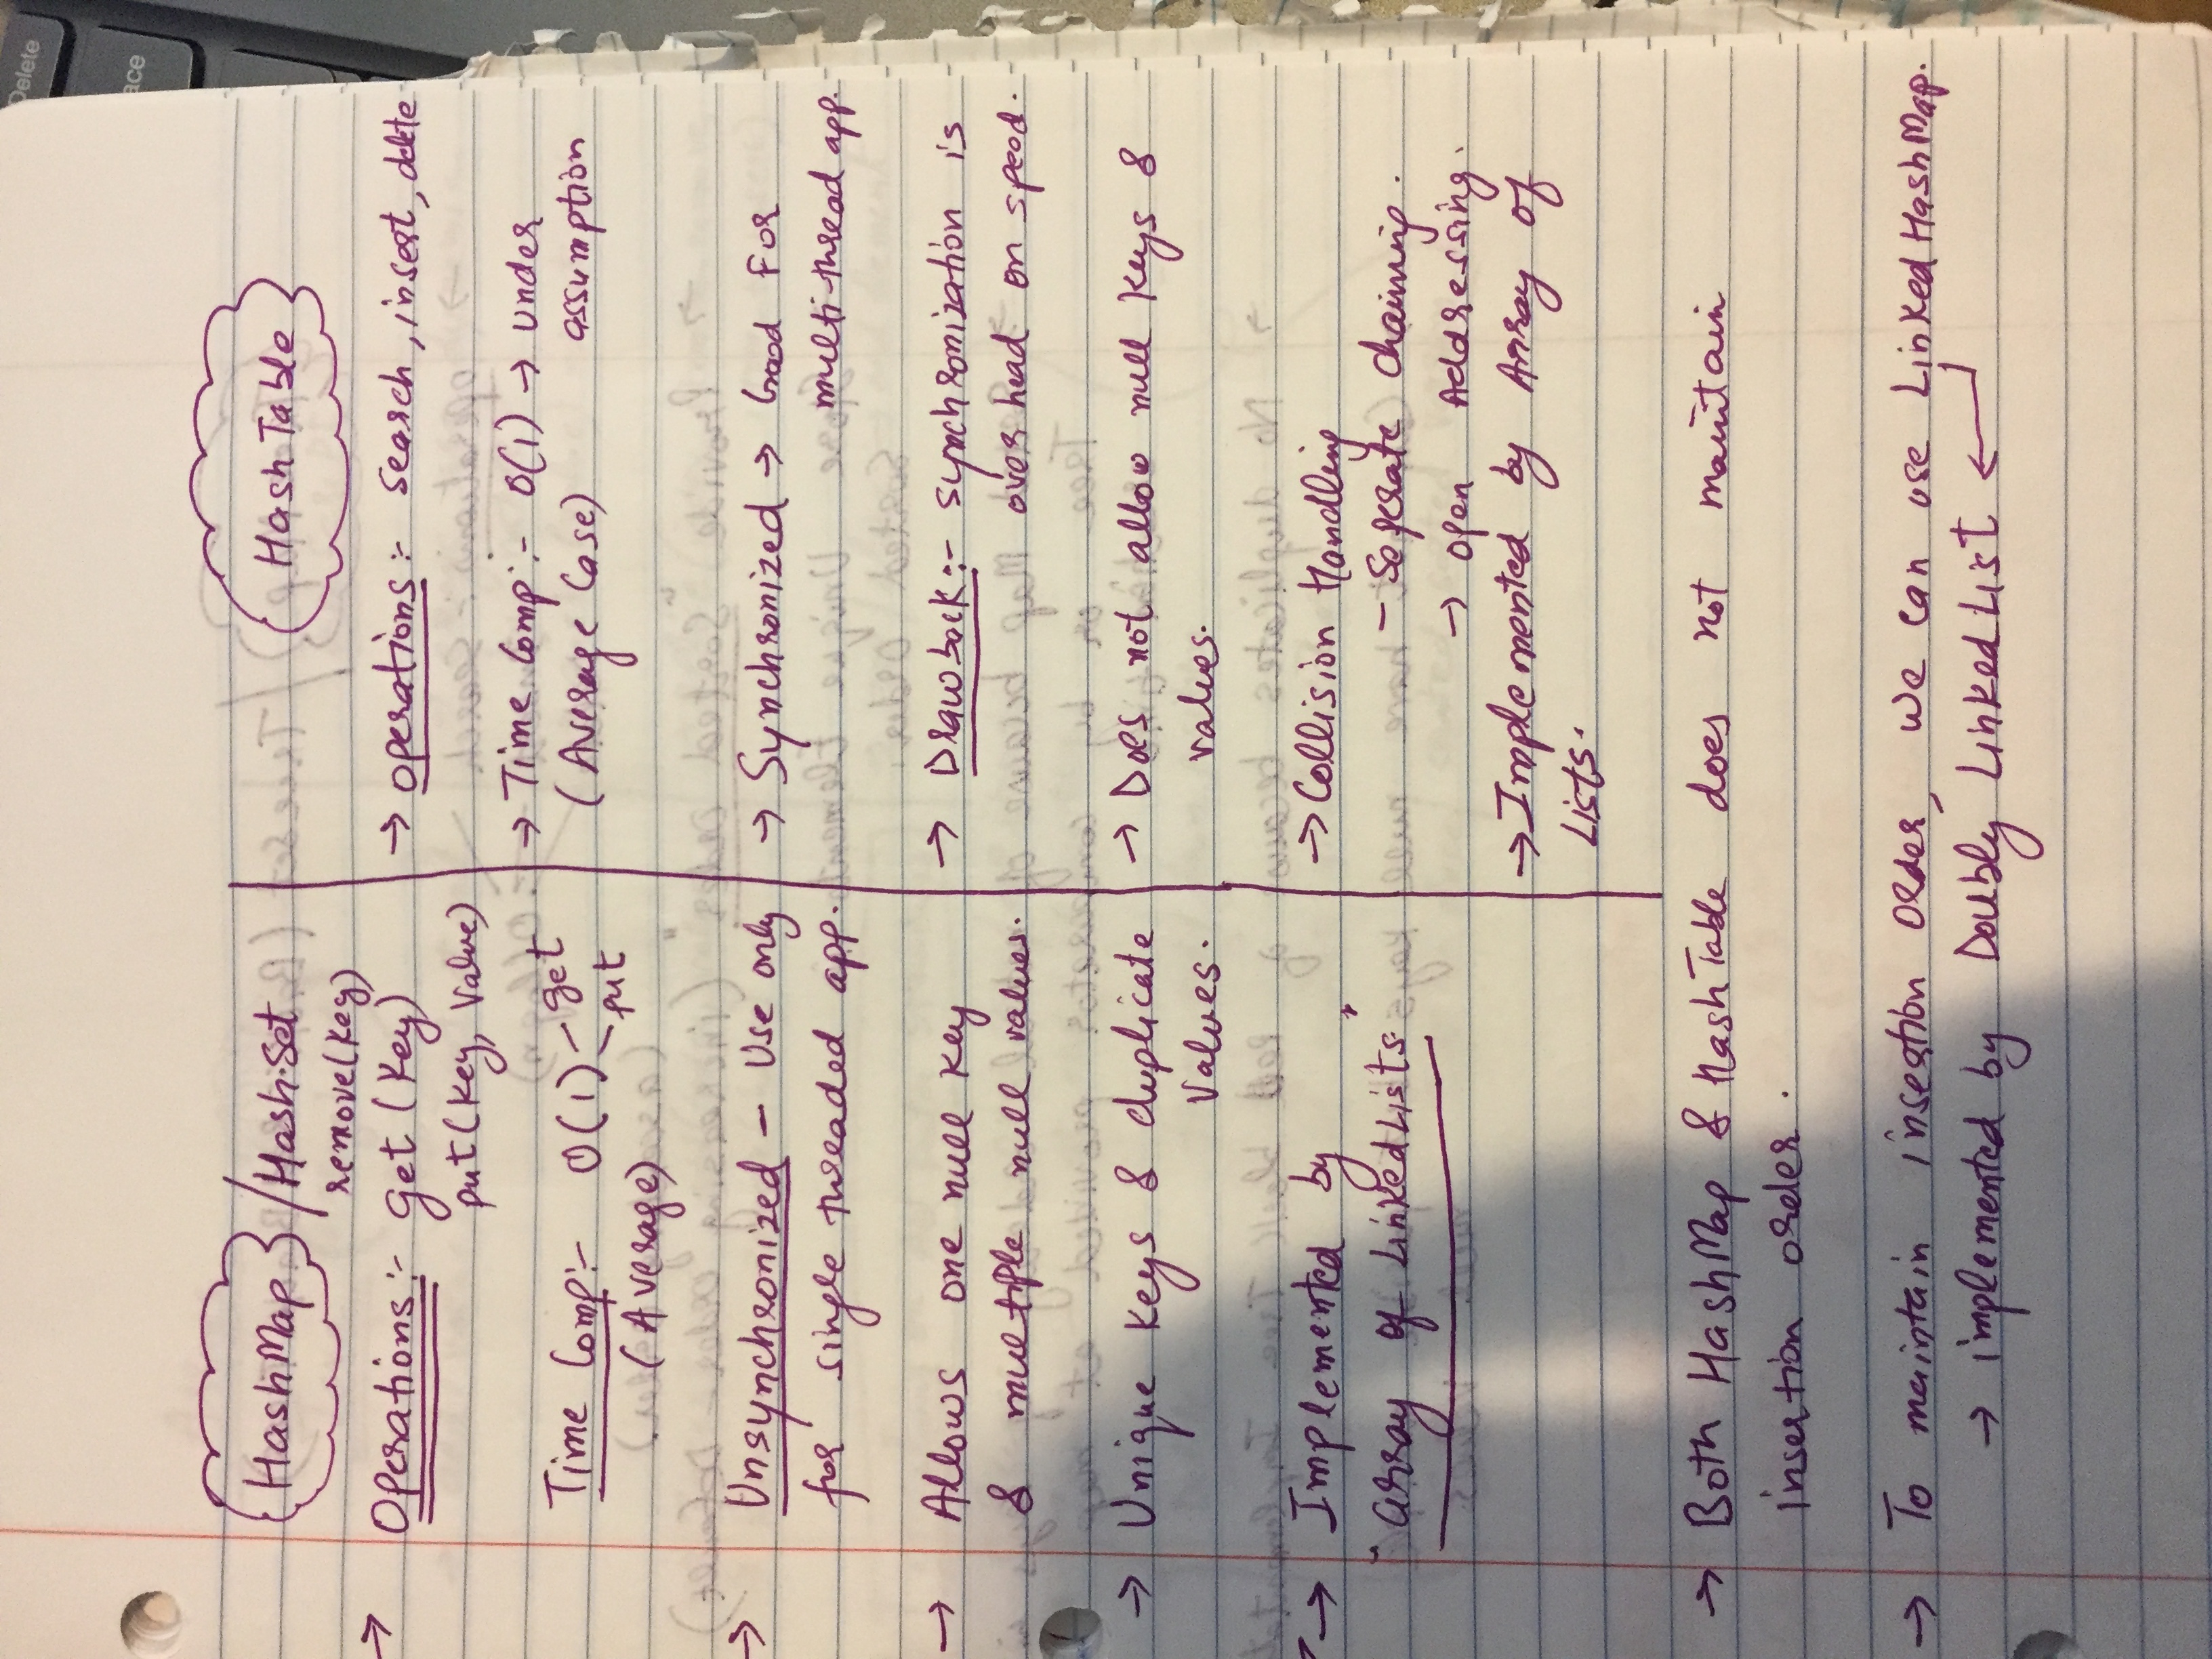 HashMap / HashSet
remove(Key)
→ Operations:- get (Key)
put (Key, Value)
Time Comp:- O(1) - get
- put
(Average)
→ Unsynchronized - Use only
for single threaded app.
→ Allows one null key
& multiple null values.
→ Unique Keys & duplicate
Values.
→ Implemented by
"array of LinkedLists"
Hash Table
→ operations:- search, insert, delete
→ Time Comp:- O(1) → under
(Average Case) assumption
→ Synchronized → Good For
multi-thread app.
→ Drawback:- synchronization is
over head on speed.
→ Does not allow null keys &
values.
→ Collision Handling
- Seperate chaining.
→ open Addressing.
→ Implemented by Array of
Lists.
→ Both HashMap & HashTable does not maintain
insertion order.
→ To maintain insertion order, we can use LinkedHashMap.
→ implemented by Doubly LinkedList ←
Delete
ace